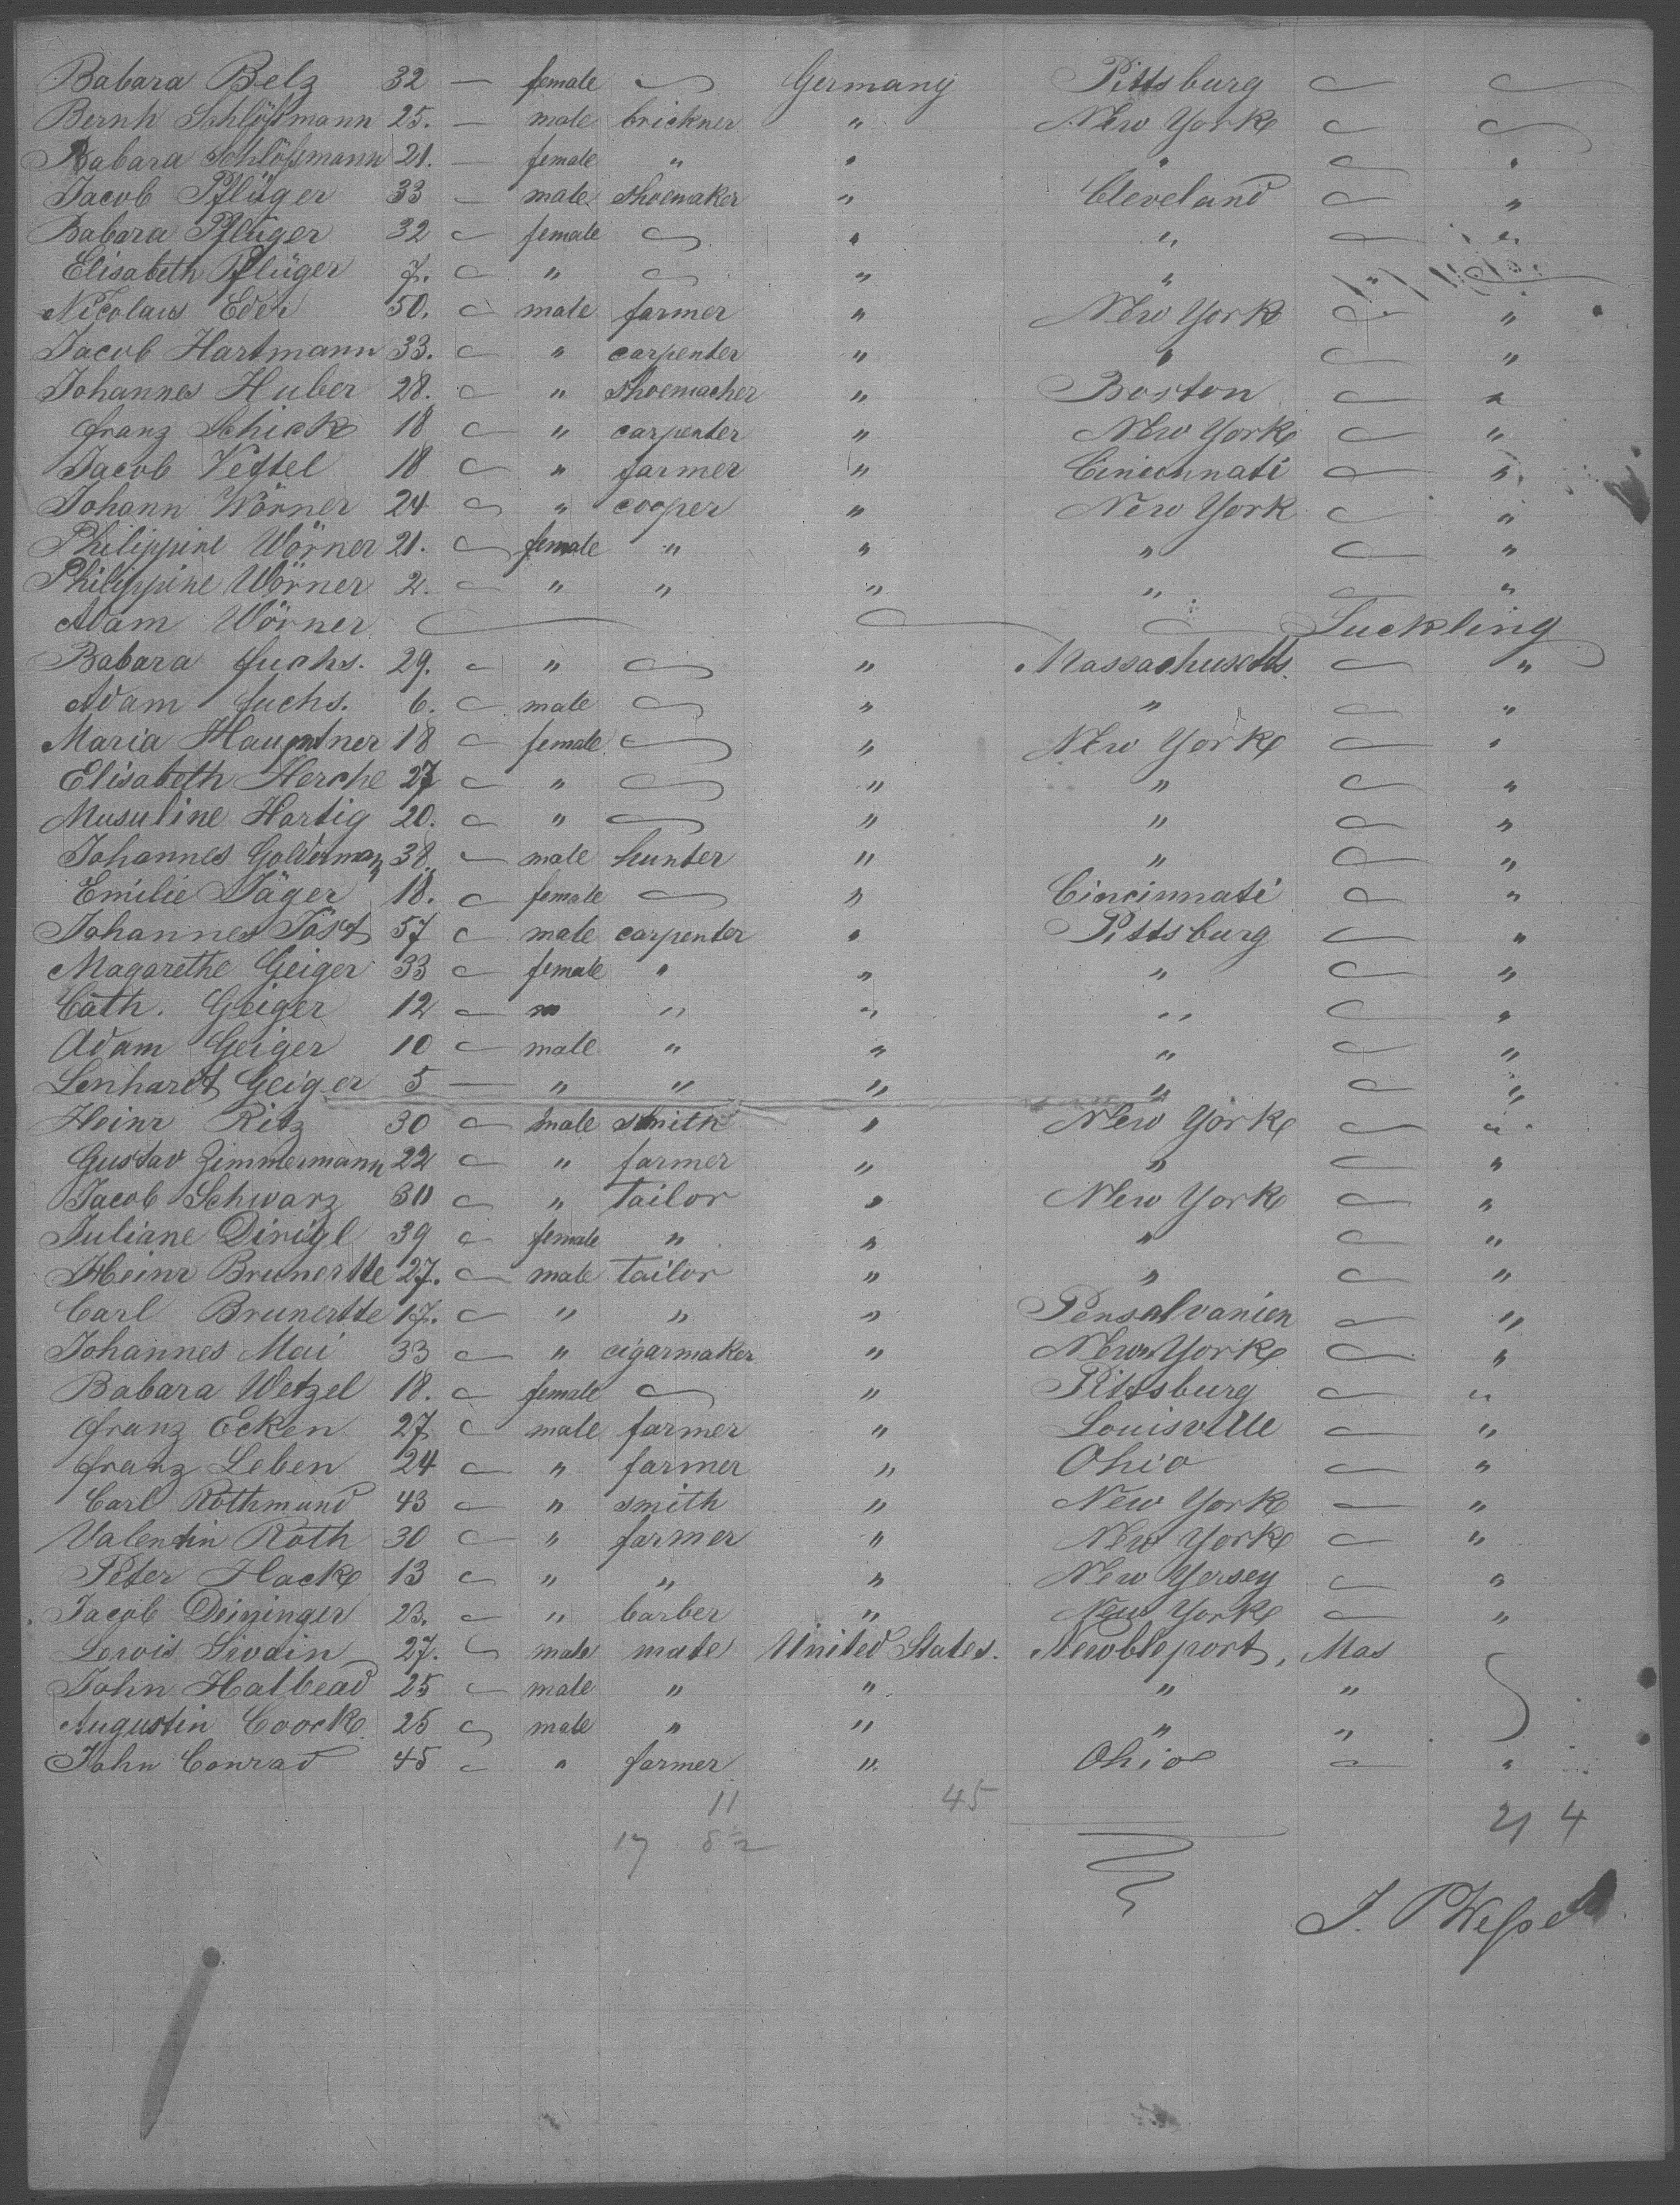 Babara Belz 32 — female — Germany Pittsburg — —
Bernh Schlößmann 25. — male brickner " New York — —
Babara Schlößmann 21. — female " " " — "
Jacob Pflüger 33 — male shoemaker " Cleveland — "
Babara Pflüger 32 — female — " " — "
Elisabeth Pflüger 7. — " — " " "
Nicolaus Eder 50. — male farmer " New York — "
Jacob Hartmann 33. — " carpenter " " — "
Johannes Huber 28. — " shoemacher " Boston — "
franz Schick 18 — " carpenter " New York — "
Jacob Vettel 18 — " farmer " Cincinnati — "
Johann Wörner 24 — " cooper " New York — "
Philippine Wörner 21. — female " " " — "
Philippine Wörner 2. — " " " " — "
Adam Wörner — — — Suckling
Babara fuchs. 29. — " — " Massachusetts. — "
Adam fuchs. 6. — male — " " — "
Maria Hauptner 18 — female — " New York — "
Elisabeth Herche 27 — " — " " — "
Musuline Hartig 20. — " — " " — "
Johannes Golderman 38. — male hunter " " — "
Emilie Jäger 18. — female — " Cincinnati — "
Johannes Jöst 57 — male carpenter " Pittsburg — "
Magarethe Geiger 33 — female " " " — "
Cath. Geiger 12 — " " " " — "
Adam Geiger 10 — male " " " — "
Lenhardt Geiger 5 — " " " " — "
Heinr Ritz 30 — male smith " New York — "
Gustav Zimmermann 22 — " farmer " " — "
Jacob Schwarz 30 — " Tailor " New York — "
Juliane Dirigl 39 — female " " " — "
Heinr Brunertte 27. — male Tailor " " — "
Carl Brunertte 17. — " " " Pensalvanien — "
Johannes Mai 33 — " cigarmaker " New York — "
Babara Wetzel 18. — female — " Pittsburg — "
franz Ecken 27 — male farmer " Louisville — "
franz Leben 24 — " farmer " Ohio — "
Carl Rothmund 43 — " smith " New York — "
Valentin Roth 30 — " farmer " New York — "
Peter Hack 13 — " " " New Yersey — "
Jacob Deininger 23. — " barber " New York — "
Lewis Siwain 27. — male mate United States. Newbleport, Mas
John Halbead 25 — male " " " "
Augustin Coock 25 — male " " " "
John Conrad 45 — " farmer " Ohio — "
11 45
21 4
17
J. P Weßel